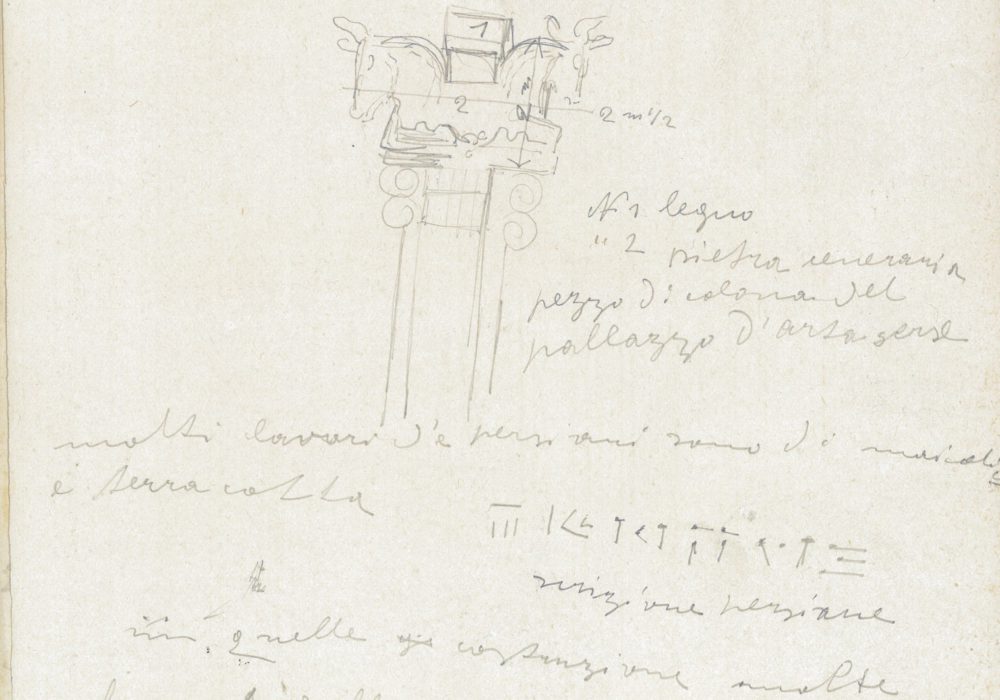 1
2
2 m 1/2
N 1 legno
" 2 pietra cenerario
pezzo di colona del
pallazzo d'artagerse
molti lavori d'e persiani sono di maiolic
e terra cotta
scrizione persiane
in quelle costruzione molte